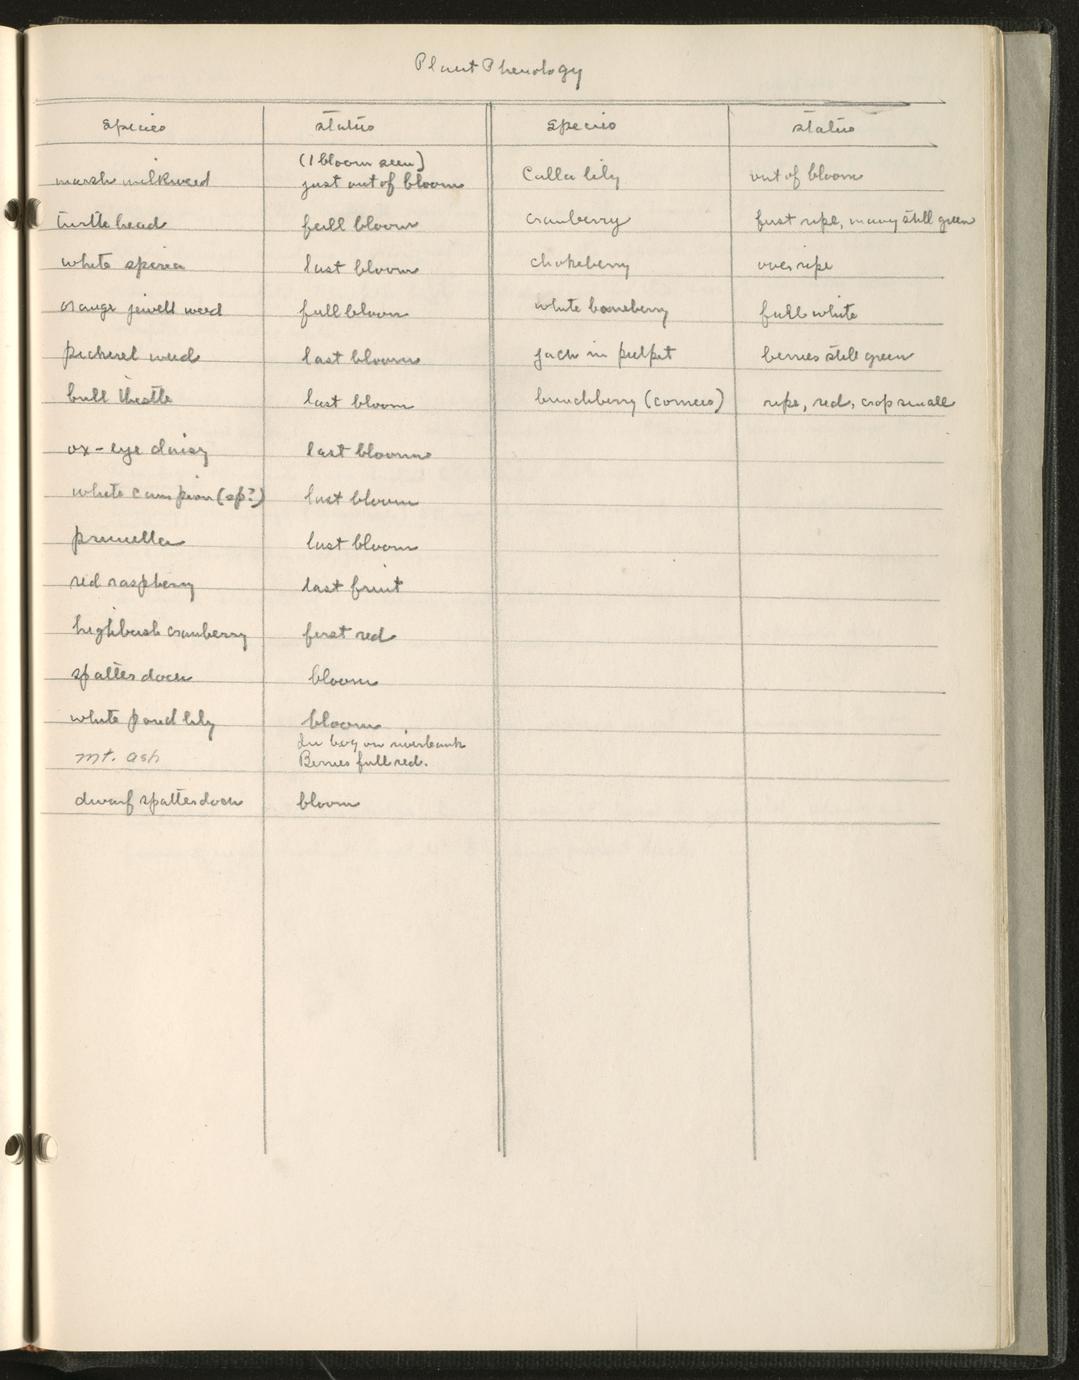 Plant Phenology
species status species status
(1 bloom seen)
marsh milkweed just out of bloom Calla lily out of bloom
turtle head full bloom cranberry first ripe, many still green
white spirea last bloom chokeberry over ripe
orange jewell weed full bloom white baneberry full white
pickerel weed last bloom jack in pulpit berries still green
bull thistle last bloom bunchberry (cornus) ripe, red, crop small
ox-eye daisy last bloom
white campion (sp?) last bloom
prunella last bloom
red raspberry last fruit
highbush cranberry first red
spatterdock bloom
white pond lily bloom
In bog on riverbank
mt. ash Berries full red.
dwarf spatterdock bloom